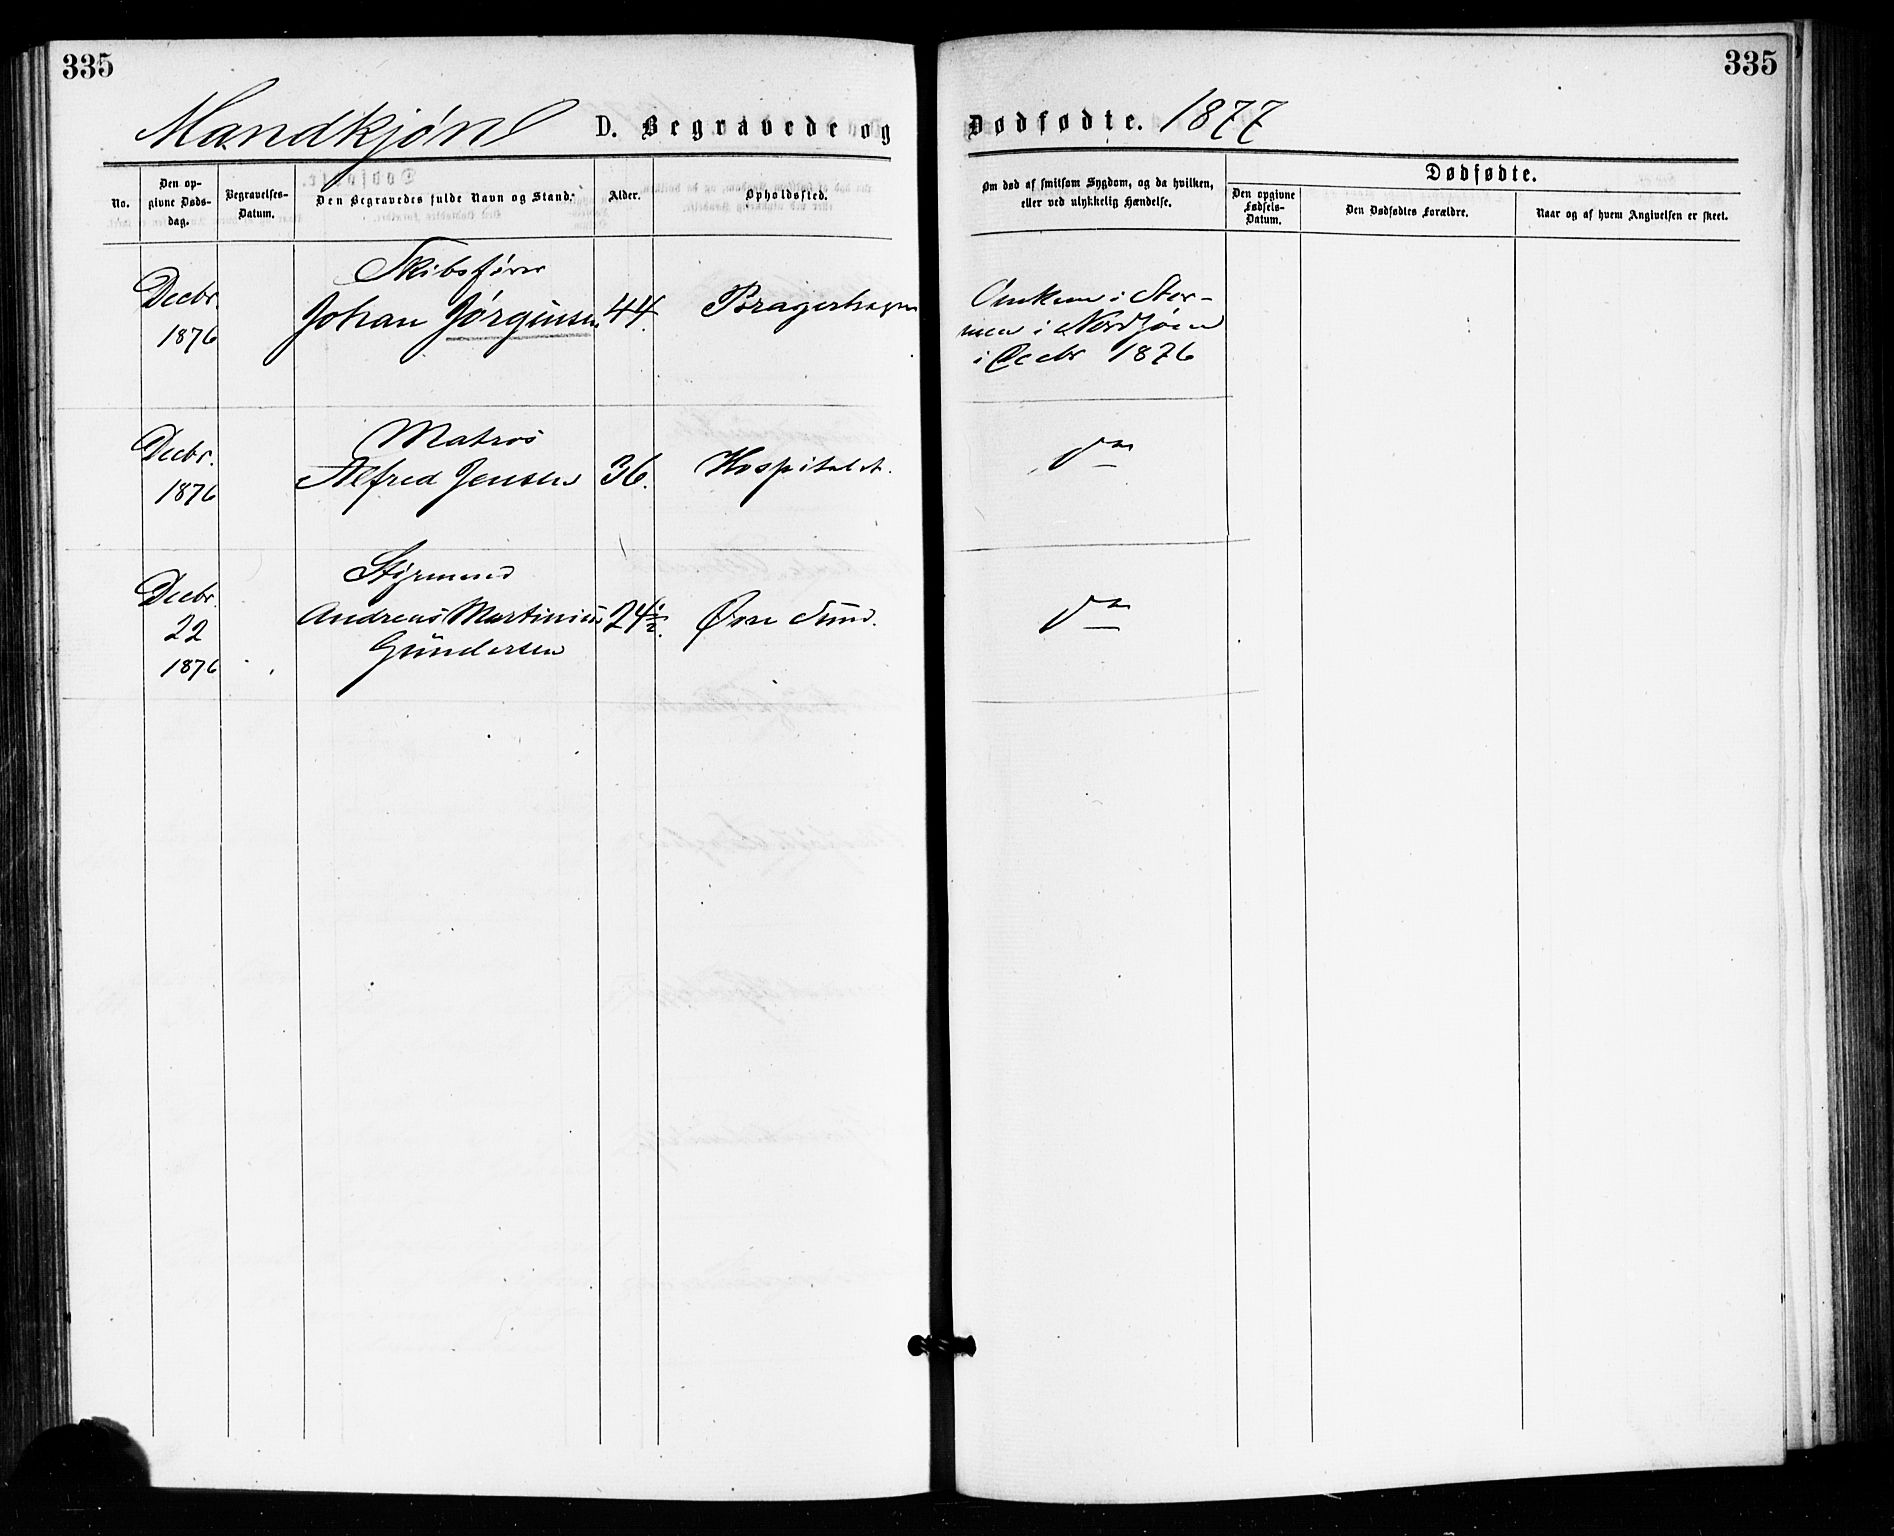 335
335
Mandkjøn D. Begravede og Dødfødte. 1877
No.
Den op-
givne Døds-
dag.
Begravelses-
Datum.
Den Begravedes fulde Navn og Stand.
Alder.
Opholdssted.
Om død af smitsom Sygdom, og da hvilken,
eller ved ulykkelig Hændelse.
Dødfødte.
Den opgivne
Fødsels-
Datum.
Den Dødfødtes Forældre.
Naar og af hvem Angivelsen er skeet.
Decbr.
1876
Skibsfører
Johan Jörgensen
44.
Bragerhagen
Omkom i Stor-
men i Nordsjøen
i Decbr 1876
Decbr.
1876
Matros
Alfred Jensen
36.
Hospitalet.
do
Decbr.
22
1876
Styrmand
Andreas Martinius
Gundersen
24 1/2.
Øvre Sund.
do